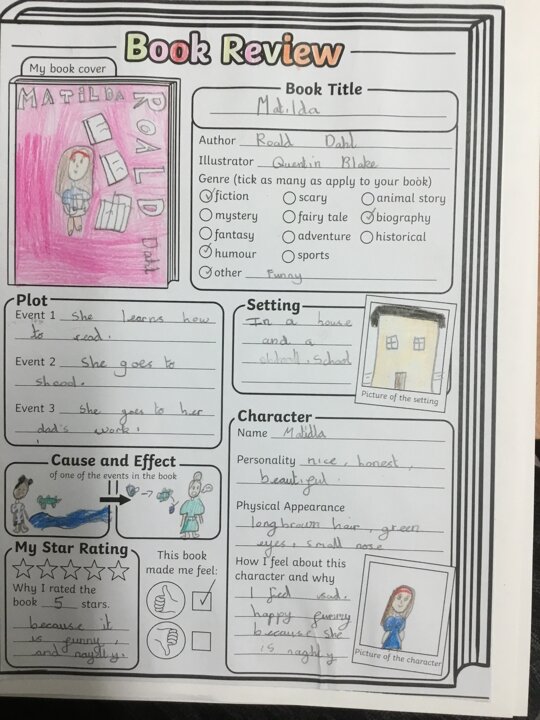 Book Review
My book cover
MATILDA
ROALD Dahl
Book Title
Matilda
Author Roald Dahl
Illustrator Quentin Blake
Genre (tick as many as apply to your book)
fiction
scary
animal story
mystery
fairy tale
biography
fantasy
adventure
historical
humour
sports
other Funny
Plot
Event 1 She learns how
to read.
Event 2 She goes to
shcool.
Event 3 She goes to her
dad's work.
Setting
In a house
and a
School
Picture of the setting
Cause and Effect
of one of the events in the book
Character
Name Matidla
Personality nice, honest,
beautiful.
Physical Appearance
long brown hair, green
eyes, small nose
How I feel about this
character and why
I feel sad,
happy funny
because she
is naghty
Picture of the character
My Star Rating
Why I rated the
book 5 stars.
because it
is funny,
and naghty.
This book
made me feel: